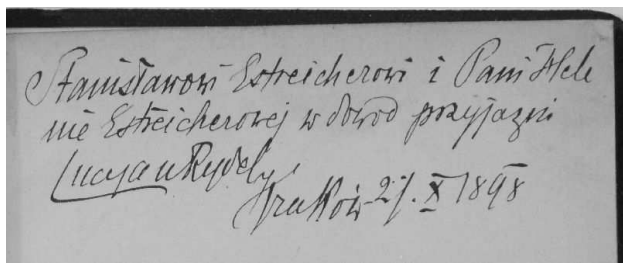 Stanisławowi Estreicherowi i Pani Hele
nie Estreicherowej w dowód przyjaźni
Lucyan Rydel
Kraków 27. X 1898